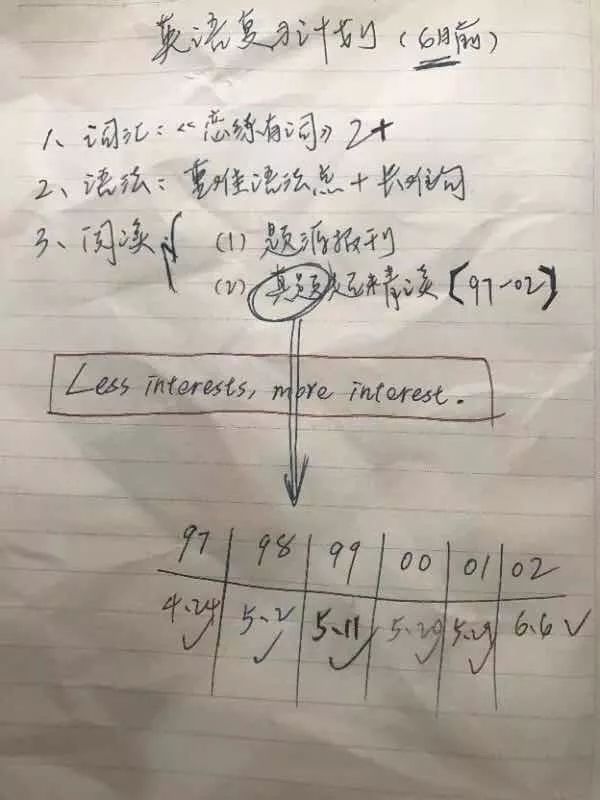 英语复习计划(6月前)
1、词汇:《恋练有词》2+
2、语法:重难语法点+长难句
3、阅读 (1) 题源报刊
(2) 真题精读【97-02】
Less interests, more interest.
97 98 99 00 01 02
4.24✓ 5.2✓ 5.11✓ 5.20✓ 5.29✓ 6.6✓